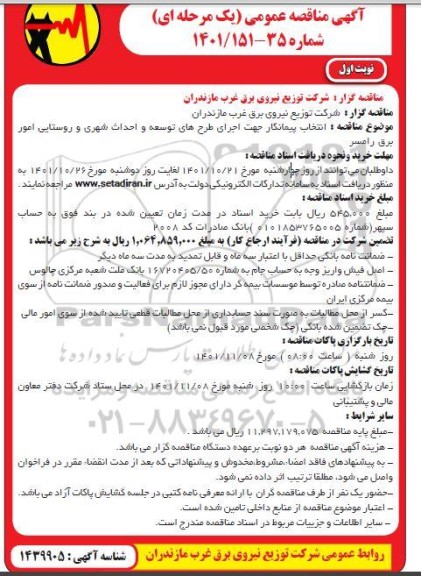 آگهی مناقصه عمومی (یک مرحله ای)
شماره ۳۵-۱۴۰۱/۱۵۱
نوبت اول
مناقصه گزار : شرکت توزیع نیروی برق غرب مازندران
مناقصه گزار : شرکت توزیع نیروی برق غرب مازندران
موضوع مناقصه : انتخاب پیمانکار جهت اجرای طرح های توسعه و احداث شهری و روستایی امور
برق رامسر
مهلت خرید ونحوه دریافت اسناد مناقصه :
داوطلبان می توانند از روز چهارشنبه مورخ ۱۴۰۱/۱۰/۲۱ لغایت روز دوشنبه مورخ ۱۴۰۱/۱۰/۲۶ به
منظور دریافت اسناد به سامانه تدارکات الکترونیکی دولت به آدرس www.setadiran.ir مراجعه نمایند .
مبلغ خرید اسناد مناقصه :
مبلغ ۵۴۵,۰۰۰ ریال بابت خرید اسناد در مدت زمان تعیین شده در بند فوق به حساب
سپهر(شماره ۰۱۰۱۸۵۳۷۶۵۰۰۵ )بانک صادرات کد ۲۰۰۸
تضمین شرکت در مناقصه (فرآیند ارجاع کار) به مبلغ ۱,۰۶۴,۸۵۹,۰۰۰ ریال به شرح زیر می باشد :
– ضمانت نامه بانکی حداقل با اعتبار سه ماه و قابل تمدید به مدت سه ماه دیگر
– اصل فیش واریز وجه به حساب جام به شماره ۱۶۷۲۰۴۰۵/۵۰ بانک ملت شعبه مرکزی چالوس
– ضمانتنامه صادره توسط موسسات بیمه گر دارای مجوز لازم برای فعالیت و صدور ضمانت نامه از سوی
بیمه مرکزی ایران
–کسر از محل مطالبات به صورت سند حسابداری از محل مطالبات قطعی تایید شده از سوی امور مالی
–چک تضمین شده بانکی (چک شخصی مورد قبول نمی باشد)
تاریخ بارگزاری پاکات مناقصه :
روز شنبه ( ساعت ۰۸:۰۰ ) مورخ ۱۴۰۱/۱۱/۰۸
تاریخ گشایش پاکات مناقصه :
زمان بازگشایی ساعت ۱۰:۰۰ روز شنبه مورخ ۱۴۰۱/۱۱/۰۸ در محل ستاد شرکت دفتر معاون
مالی و پشتیبانی
سایر شرایط :
–مبلغ پایه مناقصه ۱۱,۲۹۷,۱۷۹,۰۷۵ ریال می باشد .
– هزینه آگهی مناقصه هر دو نوبت برعهده دستگاه مناقصه گزار می باشد.
– به پیشنهادهای فاقد امضا،مشروط،مخدوش و پیشنهاداتی که بعد از مدت انقضا، مقرر در فراخوان
واصل می شود، مطلقا ترتیب اثر داده نمی شود.
–حضور یک نفر از طرف مناقصه گران با ارائه معرفی نامه کتبی در جلسه گشایش پاکات آزاد می باشد.
– اعتبار موضوع مناقصه از منابع داخلی تامین شده است.
– سایر اطلاعات و جزییات مربوط در اسناد مناقصه مندرج است.
روابط عمومی شرکت توزیع نیروی برق غرب مازندران
شناسه آگهی : ۱۴۳۹۹۰۵
ParsNamadData
۰۲۱-۸۸۳۴۹۶۷۰-۵